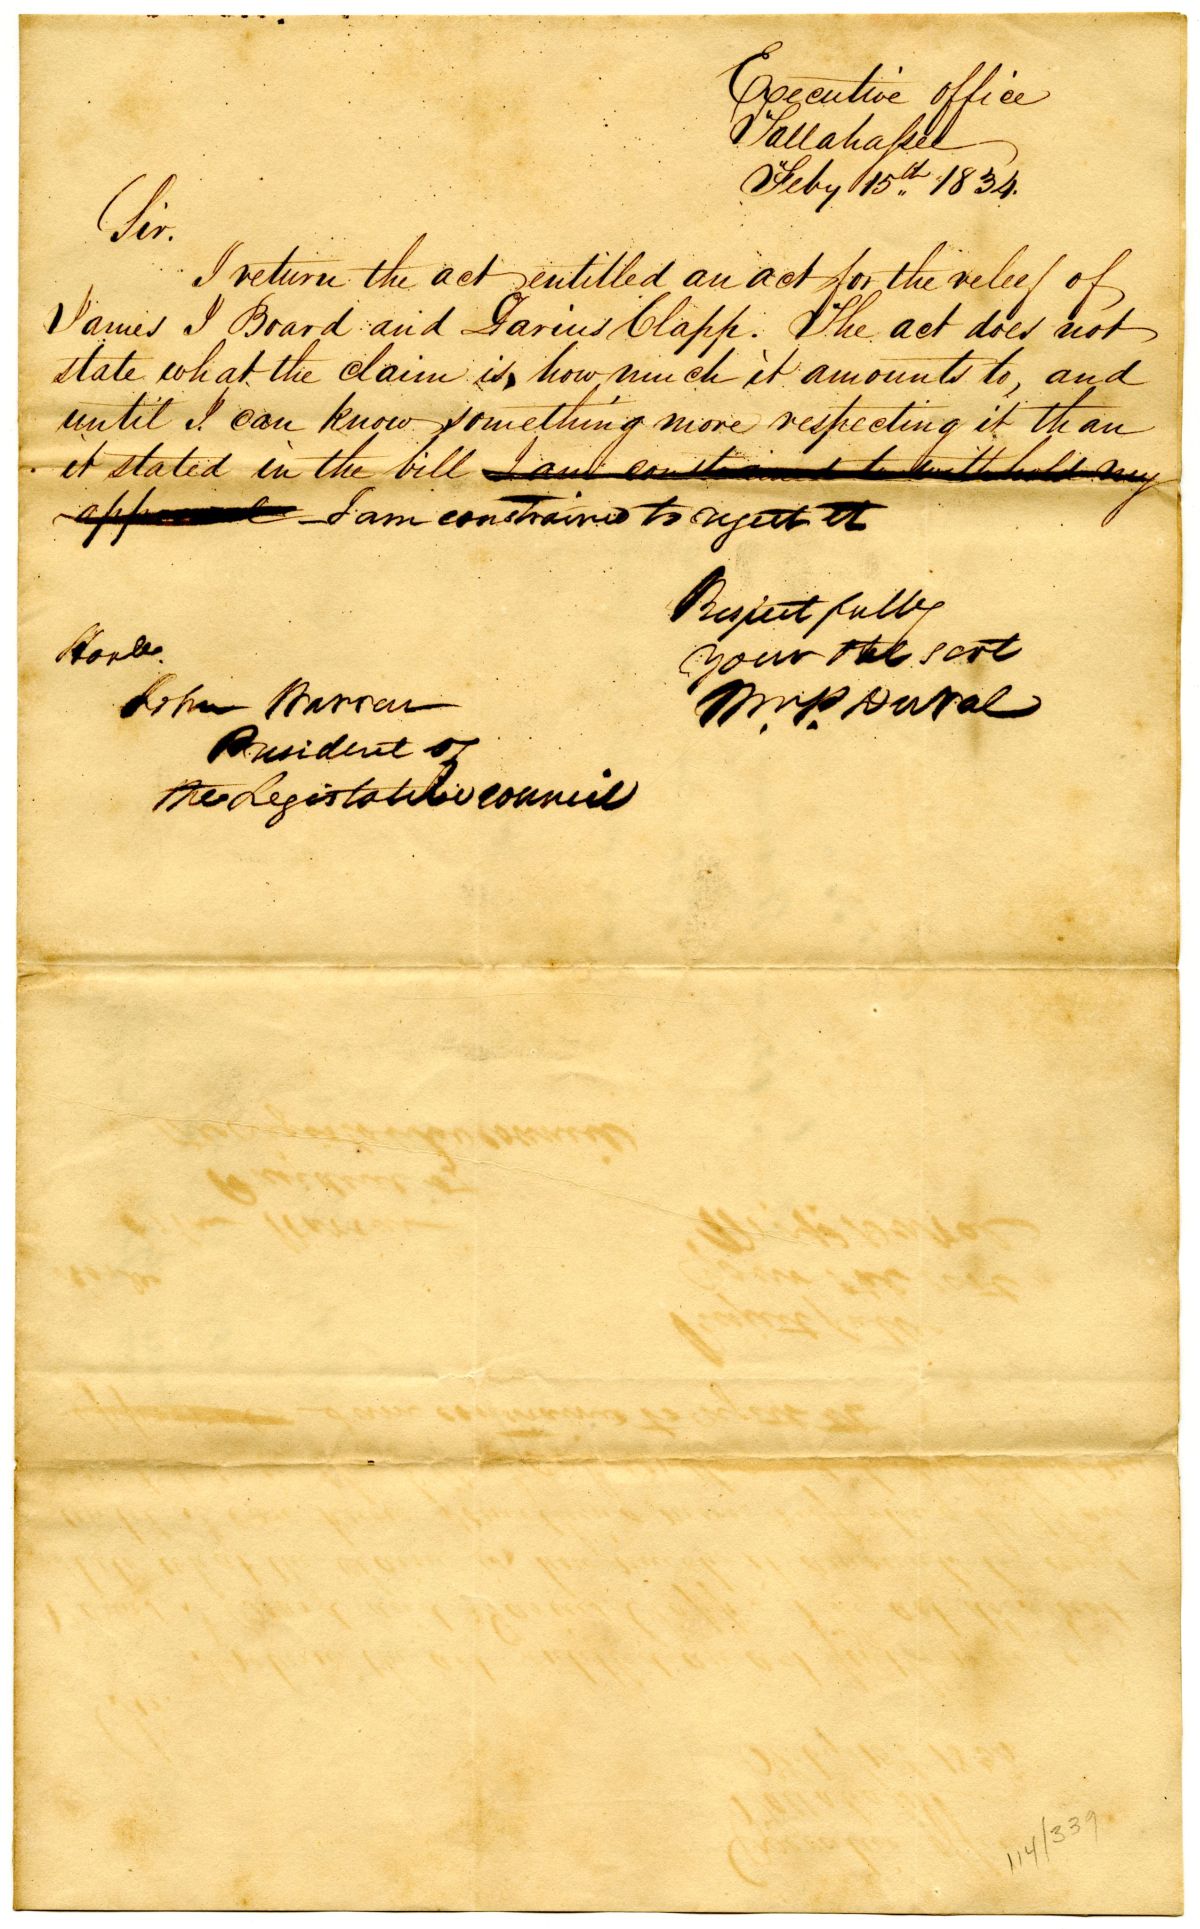 Executive office
Tallahassee
Feby 15th 1834.
Sir.
I return the act entitled an act for the releef of
James J Board and Darius Clapp. The act does not
state what the claim is, how much it amounts to, and
until I can know something more respecting it than
it stated in the bill I am constrained to withhold my
approval I am constrained to reject it
Respectfully
your Obt sevt
Wm. P. DuVal
Honble.
John Warren
President of
the Legislative council
114/339